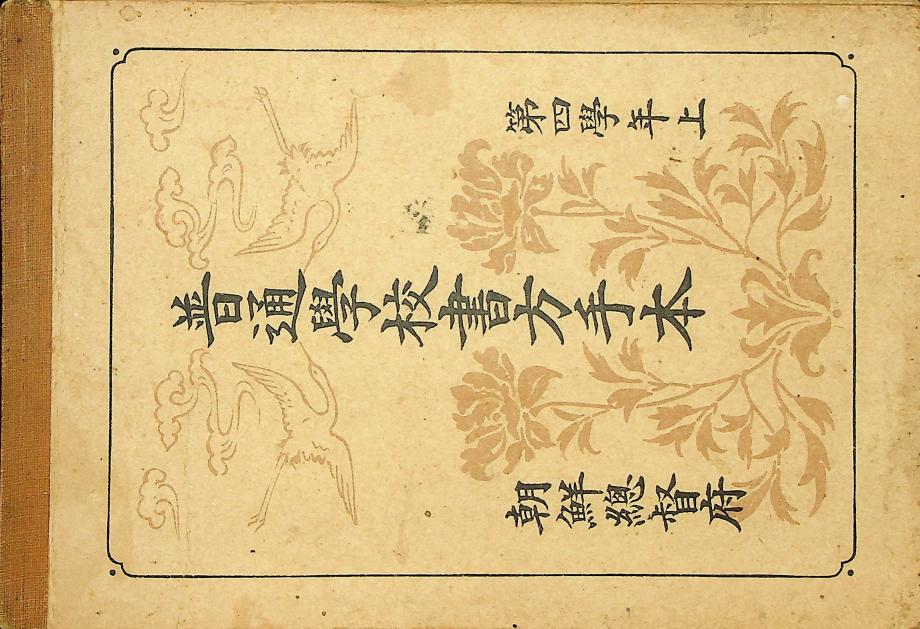 第四學年上
普通學校書方手本
朝鮮總督府